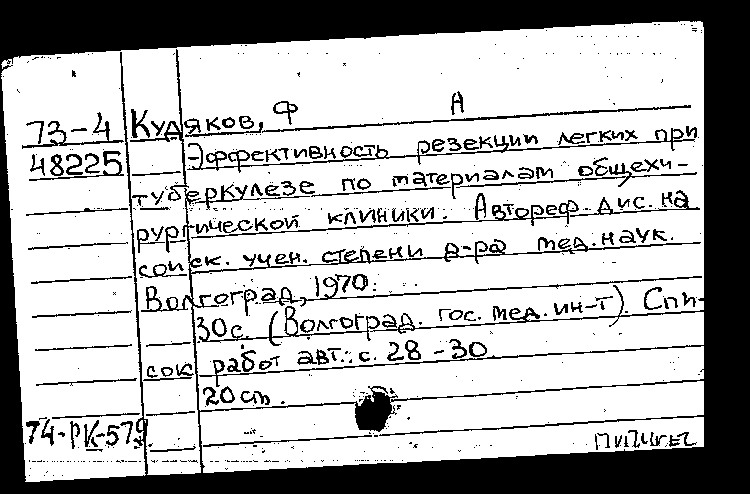 73-4 Кудяков, Ф А
48225 Эффективность резекции легких при
туберкулезе по материалам общехи-
рургической клиники. Автореф. дис. на
соиск. учен. степени д-ра мед. наук.
Волгоград, 1970.
30с. (Волгоград. гос. мед. ин-т). Спи-
сок работ авт.: с. 28-30.
20 см.
74-РК-579